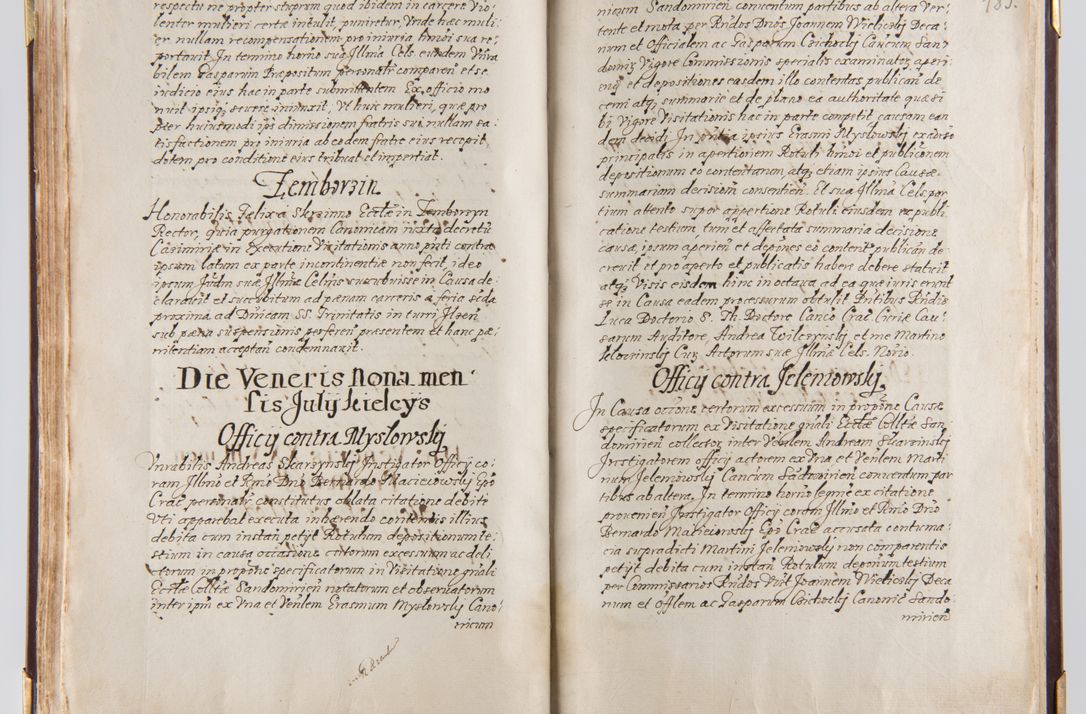 respectu ne propter stuprum quod ibidem in carcere vio
lenter mulieri certæ intulit, puniretur, Unde hac muli
er nullam recompensationem pro iniuria hmoi sua re
portavit. In termino horno sua Illma Cels. eundem Vnra
bilem Gasparum Præpositum personalr comparen et se
iudicio eius hac in parte submittentem Ex officio mo
nuit ipsiq; severe iniunxit, Ut huic mulieri, quæ pro
pter huiusmodi ipi dimissionem fratris sui, nullam sa
tisfactionem pro iniuria ab eodem fratre eius recepit,
dotem pro conditione eius tribuat et impertiat.
Zemborzin
Honorabilis Felix a Skrzinno Ecclæ in Zemborzyn
Rector, quia purgationem Canonicam iuxta decretũ
Casimiriæ in Executione Visitationis anno pnti contra
ipsum latum ex parte incontinentiæ non fecit, ideo
ipsum Judm suæ Illmæ Celnis succubuisse in Causa de
claravit et succubitum ad pænam carceris a feria 2da
proxima ad Dnicam SS. Trinitatis in turri Ilzen
sub pæna suspensionis perferen præsentem et hanc pæ
nitentiam acceptan condemnavit.
Die Veneris Nona men
sis July kielcys
Officij contra Myslowskij
Vnrabilis Andreas Skarzynskij Instigator Officy co
ram Illmo et Rmo Dno Bernardo Macieiowskij Epo
Crac personalr constitutus oblata citatione debite
Uti apparebat executa inhærendo contentis illius
debita cum instan petyt Rotulum depositionum te
stium in causa occasione certorum excessuum ac deli
ctorum in propone specificatorum in Visitatione gnali
Ecclæ Colltæ Sandomirien notatorum et observatorum
inter ipm ex Vna et Venlem Erasmum Myslowskij Cano
nicum
nicum Sandomirien conventum partibus ab altera Ver
tente et mota per Rndos Dnos Joannem Wielicskij Deca
num et Officialem ac Gasparum Cichockij Cancum San
domir Vigore Commissionis specialis examinator, aperi
eng et depositiones easdem illo contentas publican de
cerni atq; summarie et de plano ea authoritate quæ si
bi Vigore Visitationis hac in parte competit causam ean
dem decidi In pntia ipsius Erasmi Myslowskij ex adverso
principalis in apertionem Rotuli hmoi et publiconem
depositionum eo contentarum, atq; etiam ipsius Causæ
summariam decisionem consentien. Et sua Illma Cels. par
tium attento super appertione Rotuli eiusdem ac publi
catione testium, tum et affectata summaria decisione
causæ, ipsum aperien et depones eo content publican de
crevit et pro aperto et publicatis habere debere statuit
atq; Visis eisdem hinc in octava ad ea quæ iuris erunt
se in Causa eadem processurum obtulit Pntibus Rndis
Luca Doctorio S. Th. Doctore Canco Crac Curiæ Cau
sarum Auditore, Andrea Wilczynskij et me Martino
Curæ Actorum suæ Illmæ Cels. Norio.
Officij contra Jeleniowskij
In Causa occone certorum excessuum in propone Causæ
specificatorum ex Visitatione gnali Ecclæ Colltæ San
domirien collector, inter Venlem Andream Skarzinskij
Instigatorem officij actorem ex Vna et Venlem Marti
num Jeleniowskij Cancum Sadomirien conventum par
tibus ab altera. In termino horno legme ex citatione
provenien Instigator Officy coram Illmo et Rmo Dno
Bernardo Macieiowskij Epo Crac accusata contuma
cia supradicti Martini Jeleniowskij non comparentis
petyt debita cum instan Rotulum deponum testium
per Commissarios Rndos Dnos Joannem Wielicskij Deca
num et Offlem ac Gasparum Cichockij Canonic Sando
mirien